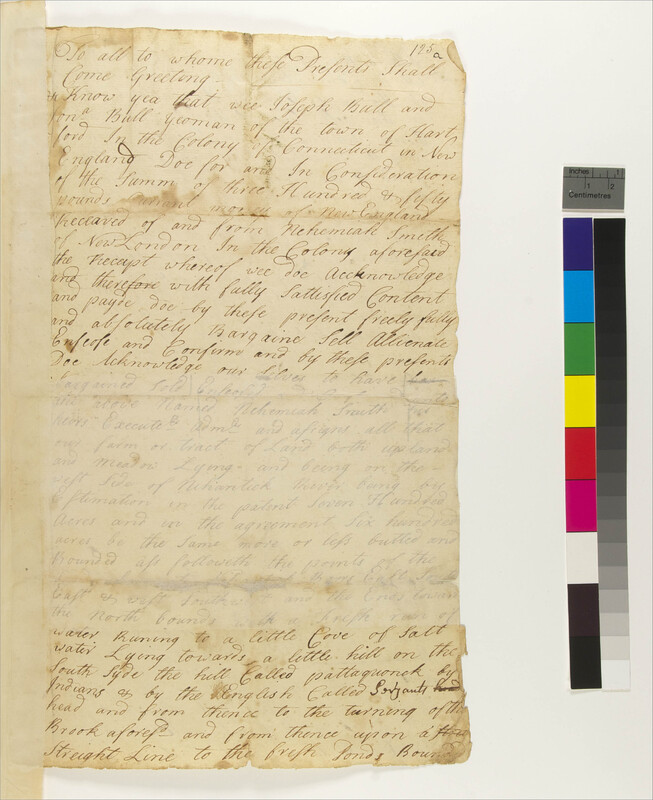 125a
To all to whome these Presents Shall
Come Greeting
Know yea that wee Joseph Bull and
Jona Bull yeoman of the town of Hart
ford In the Colony of Connecticut in New
England Doe for and In Consideration
of the Summ of three Hundred & fifty
pounds Currant money of New England
Receaved of and from Nehemiah Smith
of New London In the Colony aforesaid
the Receipt whereof wee doe Acknowledge
and therefore with fully Sattisfied Content
and payde doe by these present freely fully
and absolutely Bargaine Sell Allienate
Enfeose and Confirm and by these presents
Doe Acknowledge our selves to have
Bargained sold Enfeosed
the above Named Nehemiah Smith his
heirs Execute Adm and assigns all that
our farm or tract of Land both upland
and Meadow Lyeing and being on the
west Side of Nihantick River being by
Estimation in the patent Seven Hundred
Acres and in the agreement Six hundred
acres be the same more or less butted and
Bounded ass followeth the points of the
East & west South and the Ends towar
the North bounds with a fresh run of
water Runing to a little Cove of Salt
water Lying towards a little hill on the
South Syde the hill Called pattaquonck by
Indians & by the English Called Serjants head
head and from thence to the turning of th
Brook aforesd and from thence upon a
Streight Line to the fresh Ponds Bound
inches 1
1 2
Centimetres